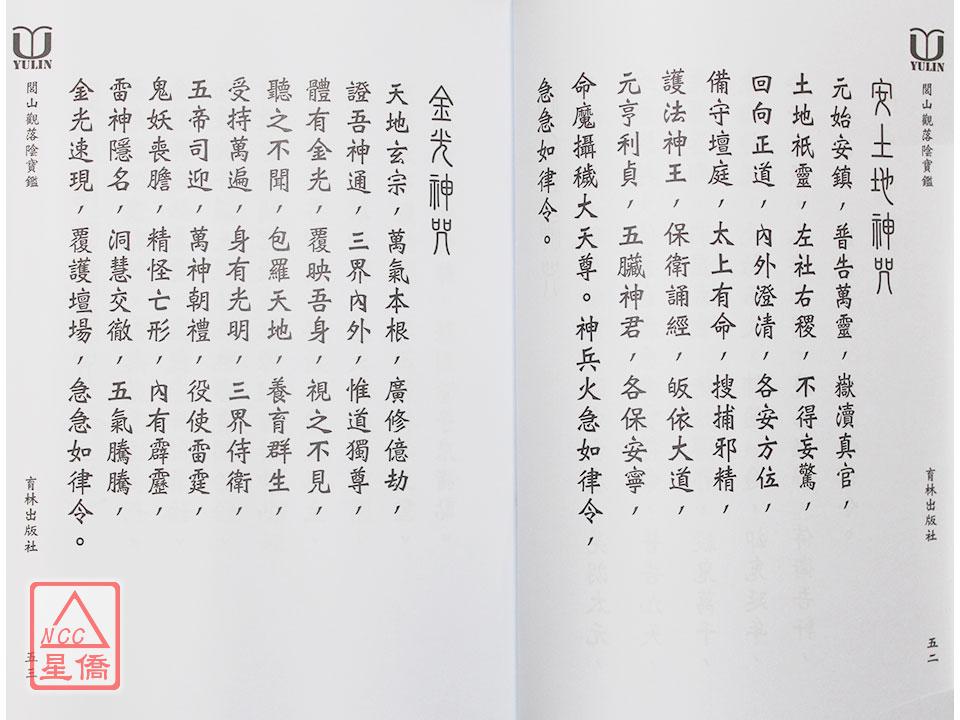 YULIN
閭山觀落陰寶鑑
育林出版社
五二
安土地神咒
元始安鎮,普告萬靈,嶽瀆真官,
土地祇靈,左社右稷,不得妄驚,
回向正道,內外澄清,各安方位,
備守壇庭,太上有命,搜捕邪精,
護法神王,保衛誦經,皈依大道,
元亨利貞,五臟神君,各保安寧,
命魔攝穢大天尊。神兵火急如律令,
急急如律令。
金光神咒
天地玄宗,萬氣本根,廣修億劫,
證吾神通,三界內外,惟道獨尊,
體有金光,覆映吾身,視之不見,
聽之不聞,包羅天地,養育群生,
受持萬遍,身有光明,三界侍衛,
五帝司迎,萬神朝禮,役使雷霆,
鬼妖喪膽,精怪亡形,內有霹靂,
雷神隱名,洞慧交徹,五氣騰騰,
金光速現,覆護壇場,急急如律令。
YULIN
閭山觀落陰寶鑑
育林出版社
五三
NCC
星僑